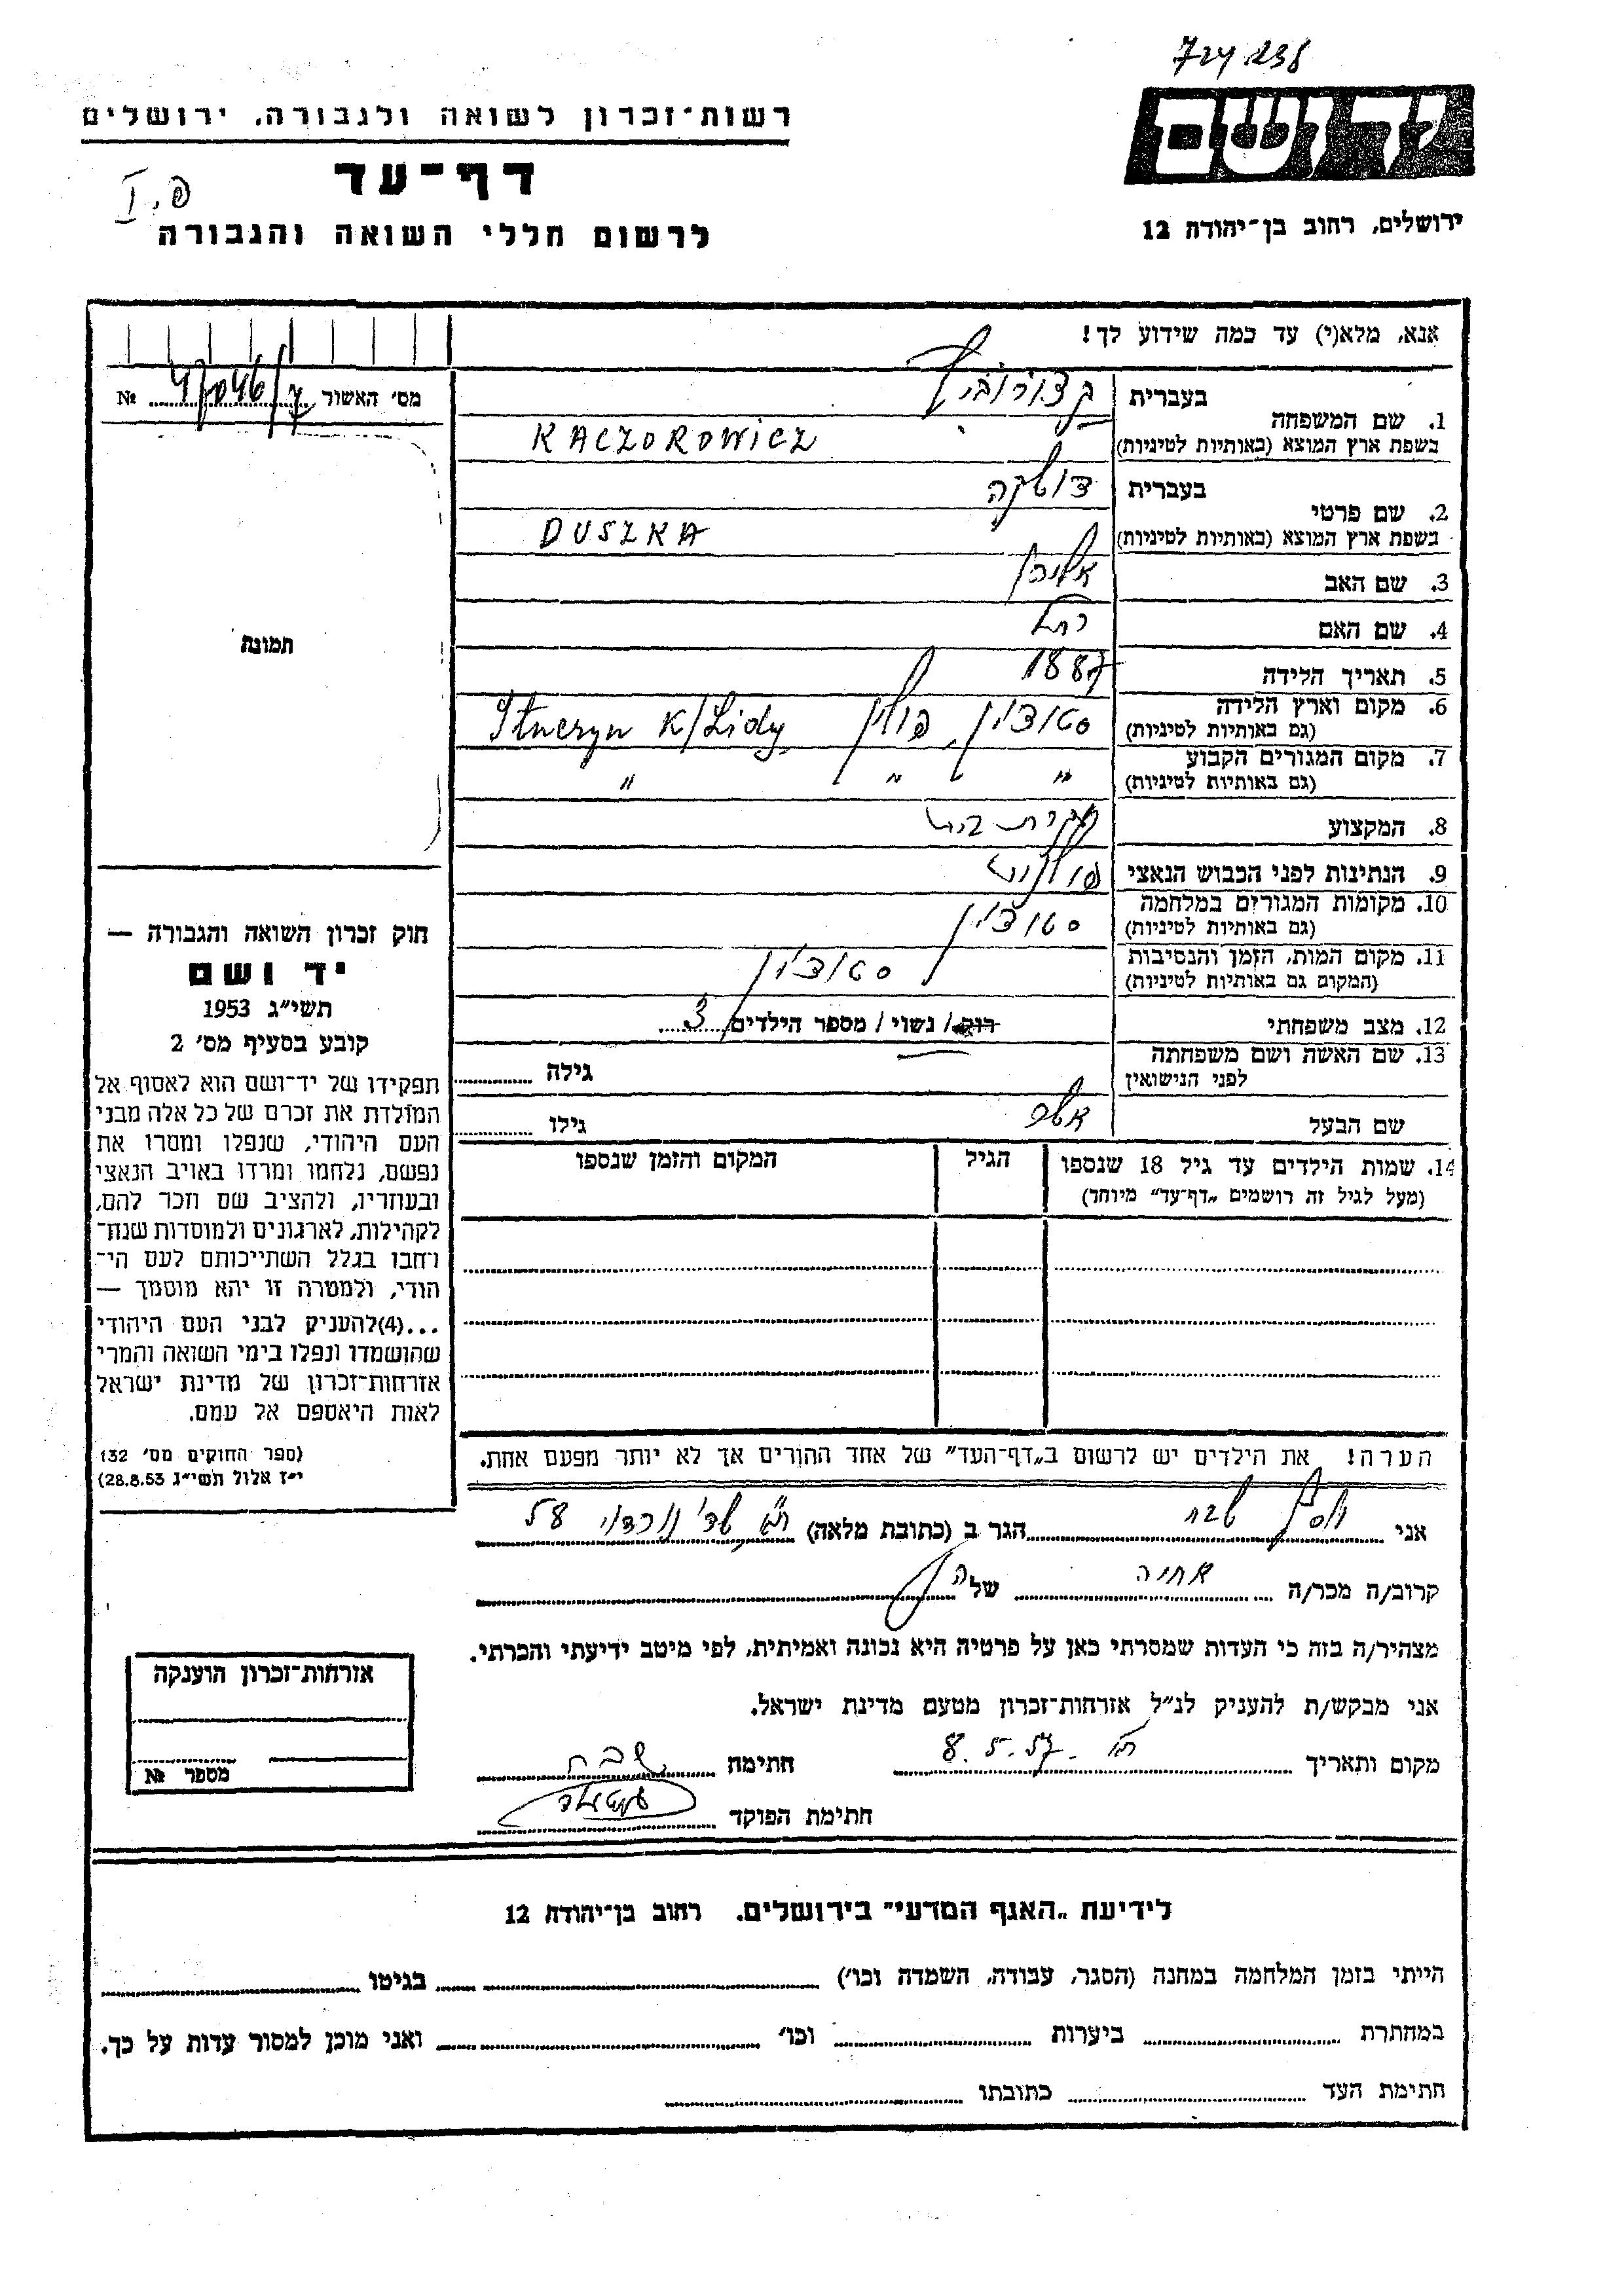 724 238
יד ושם
ירושלים, רחוב בן־יהודה 12
רשות־זכרון לשואה ולגבורה, ירושלים
דף־עד
פ. I
לרשום חללי השואה והגבורה
אנא, מלא(י) עד כמה שידוע לך!
מס׳ האשור 7/046/4 №
תמונה
חוק זכרון השואה והגבורה —
יד ושם
תשי״ג 1953
קובע בסעיף מס׳ 2
תפקידו של יד־ושם הוא לאסוף אל
המולדת את זכרם של כל אלה מבני
העם היהודי, שנפלו ומסרו את
נפשם, נלחמו ומרדו באויב הנאצי
ובעוזריו, ולהציב שם וזכר להם,
לקהילות, לארגונים ולמוסדות שנח־
רחבו בגלל השתייכותם לעם הי־
הודי, ולמטרה זו יהא מוסמך —
...(4)להעניק לבני העם היהודי
שהושמדו ונפלו בימי השואה והמרי
אזרחות־זכרון של מדינת ישראל
לאות היאספם אל עמם.
(ספר החוקים מס׳ 132
י״ז אלול תשי״ג 28.8.53)
1. שם המשפחה
בעברית קצורוביץ
בשפת ארץ המוצא (באותיות לטיניות) KACZOROWICZ
2. שם פרטי
בעברית דושקה
בשפת ארץ המוצא (באותיות לטיניות) DUSZKA
3. שם האב
4. שם האם רחל
5. תאריך הלידה 1887
6. מקום וארץ הלידה סטוצ׳ין, פולין K/Lidy
(גם באותיות לטיניות)
7. מקום המגורים הקבוע " " "
(גם באותיות לטיניות)
8. המקצוע עקרת בית
9. הנתינות לפני הכבוש הנאצי פולנית
10. מקומות המגורים במלחמה סטוצ׳ין
(גם באותיות לטיניות)
11. מקום המות, הזמן והנסיבות סטוצ׳ין
(המקום גם באותיות לטיניות)
12. מצב משפחתי רווק / נשוי / מספר הילדים 3
13. שם האשה ושם משפחתה גילה
לפני הנישואין
שם הבעל גילו
14. שמות הילדים עד גיל 18 שנספו הגיל המקום והזמן שנספו
(מעל לגיל זה רושמים „דף־עד״ מיוחד)
הערה! את הילדים יש לרשום ב„דף־העד״ של אחד ההורים אך לא יותר מפעם אחת.
אני הגר ב (כתובת מלאה) ת״א שד׳ נורדוי 58
קרוב/ה מכר/ה אחיה של ה
מצהיר/ה בזה כי העדות שמסרתי כאן על פרטיה היא נכונה ואמיתית, לפי מיטב ידיעתי והכרתי.
אני מבקש/ת להעניק לנ״ל אזרחות־זכרון מטעם מדינת ישראל.
מקום ותאריך ת״א 8.5.57 חתימה
חתימת הפוקד
אזרחות־זכרון הוענקה
מספר №
לידיעת „האגף המדעי״ בירושלים. רחוב בן־יהודה 12
הייתי בזמן המלחמה במחנה (הסגר, עבודה, השמדה וכו׳) בגיטו
במחתרת ביערות וכו׳ ואני מוכן למסור עדות על כך.
חתימת העד כתובתו